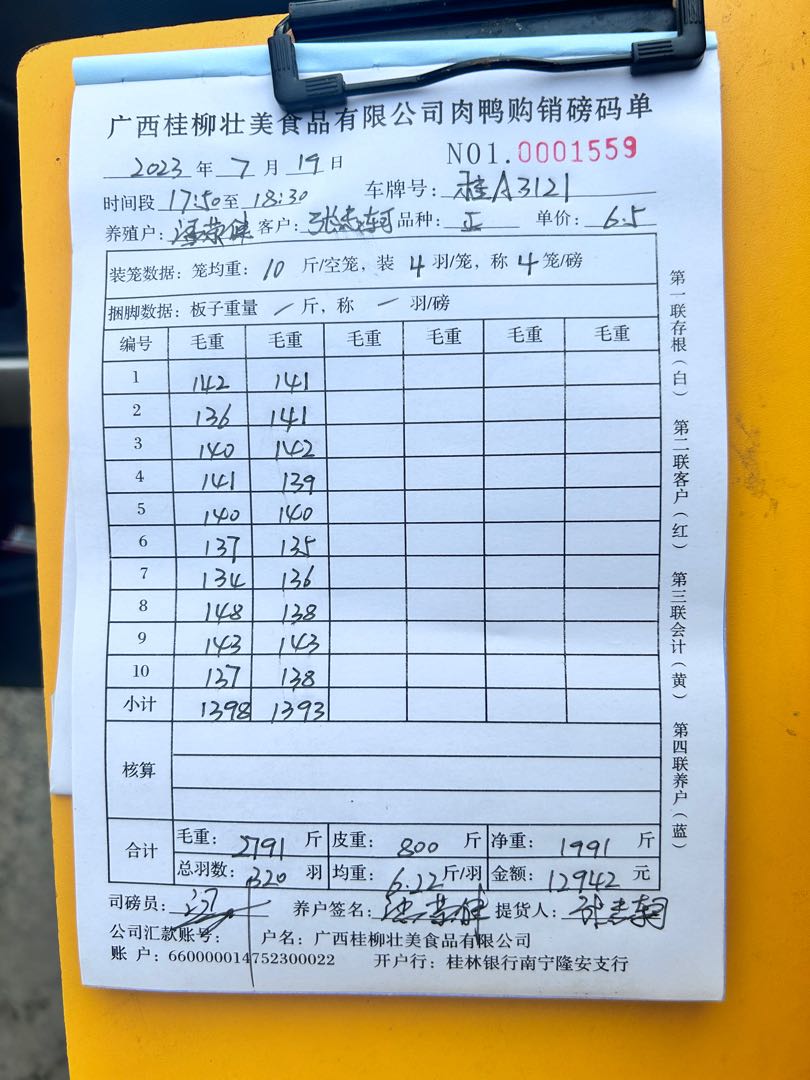 广西桂柳壮美食品有限公司肉鸭购销磅码单
2023 年 7 月 19 日 NO1.0001559
时间段 17:50 至 18:30 车牌号: 桂A3121
养殖户: 客户: 品种: 正 单价: 6.5
装笼数据: 笼均重: 10 斤/空笼, 装 4 羽/笼, 称 4 笼/磅
捆脚数据: 板子重量 一 斤, 称 一 羽/磅
编号 毛重 毛重 毛重 毛重 毛重 毛重
1 142 141
2 136 141
3 140 142
4 141 139
5 140 140
6 137 135
7 134 136
8 148 138
9 143 143
10 137 138
小计 1398 1393
核算
合计 毛重: 2791 斤 皮重: 800 斤 净重: 1991 斤
总羽数: 320 羽 均重: 6.22 斤/羽 金额: 12942 元
司磅员: 养户签名: 提货人:
公司汇款账号: 户名: 广西桂柳壮美食品有限公司
账 户: 660000014752300022 开户行: 桂林银行南宁隆安支行
第一联存根(白) 第二联客户(红) 第三联会计(黄) 第四联养户(蓝)